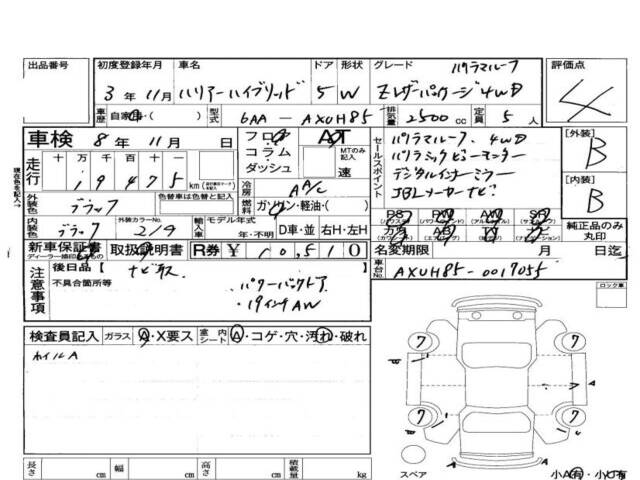 出品番号 初度登録年月 車名 ドア 形状 グレード 評価点
3年11月 ハリアーハイブリッド 5 W パノラマルーフ
Zレザーパッケージ4WD
4
車歴 自家用・( ) 型式 6AA-AXUH85 排気量 2500cc 定員 5人
車検 8年11月 日 フロア コラム ダッシュ AT MTのみ記入 速
走行 十 万 千 百 十 一
19475km
現在色を記入→
色替車は色替と記入
冷房 AAC
燃料 ガソリン・軽油・( )
セールスポイント
パノラマルーフ、4WD
パノラミックビューモニター
デジタルインナーミラー
JBLメーカーナビ
[外装] B
[内装] B
外装色 ブラック
内装色 ブラック 外装カラーNo. 219 輸入車 モデル年式 年・不明 D車・並 右H・左H
PS PW AW SR
カワ AB TV ナビ
純正品のみ丸印
新車保証書 取扱説明書 R券 ¥10,510
名変期限 月 日迄
車台No. AXUH85-0017055
注意事項 後日品【ナビ取
不具合箇所等
・パワーバックドア
・19インチAW
ロック車
検査員記入 ガラス A・X要ス 室内シート A・コゲ・穴・汚れ・破れ
ホイルA
7 7
7 7
A
長さ cm 幅 cm 高さ cm 積載量 kg
スペア 小A有・小U有